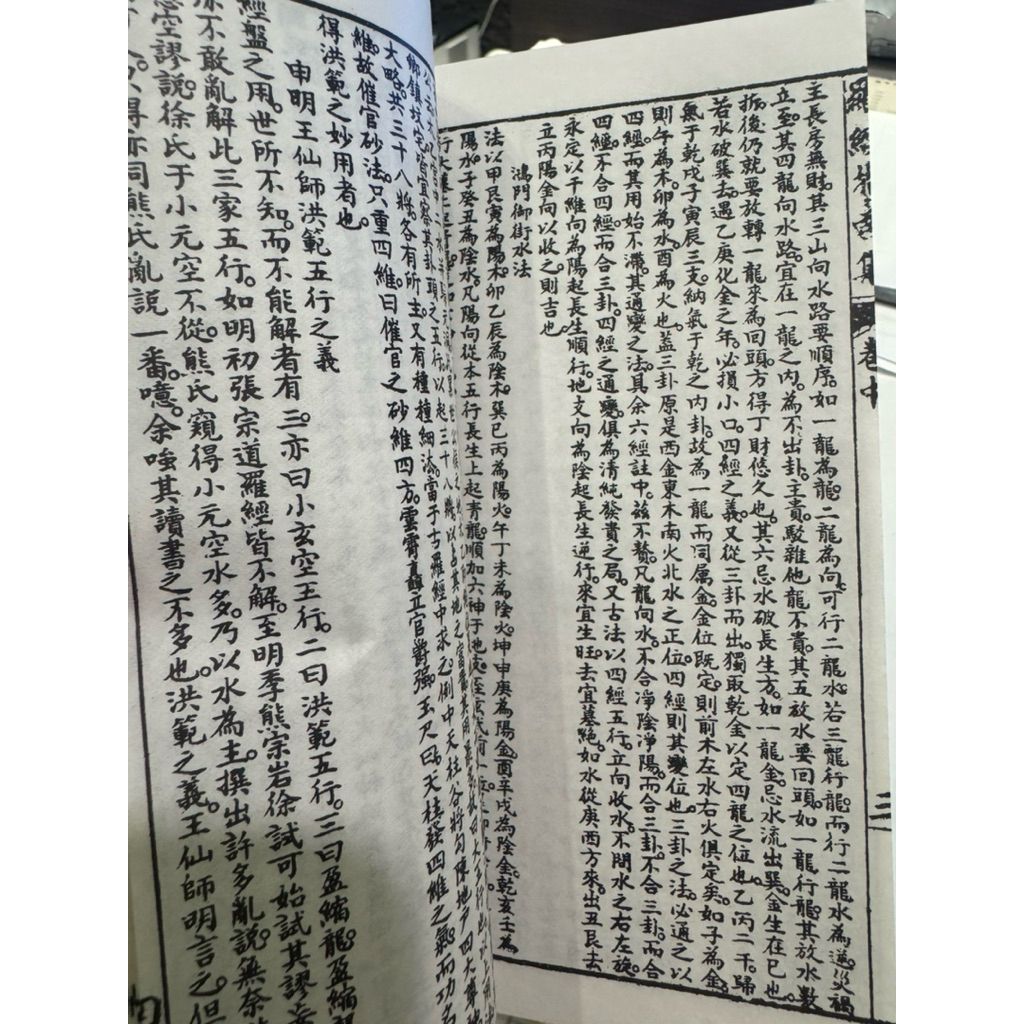 主長房無財。其三山向水路要順序。如一龍為龍。二龍為向。可行二龍水。若三龍行龍。而行二龍水為逆。災禍
立至。其四龍向水路。宜在一龍之內。為不出卦。主貴。駁雜他龍不貴。其五放水要回頭。如一龍行龍。其放水數
折後仍就要放轉一龍來為回頭。方得丁財悠久也。其六忌水破長生方。如一龍金。忌水流出巽。金生在巳也。
若水破巽去。遇乙庚化金之年。必損小口。四經之義。又從三卦而出。獨取乾金以定四龍之位也。乙丙二干。歸
氣于乾。戌子寅辰三支。納氣于乾之內卦。故為一龍而同属金。金位既定。則前木左水右火俱定矣。如子為金。
則午為木。卯為水。酉為火也。蓋三卦原是西金東木南火北水之正位。四經則其變位也。三卦之法。必通之以
四經。而其用始不滯。其通變之法。具余六經註中。茲不贅。凡龍向水。不合淨陰淨陽。而合三卦。不合三卦。而合
四經。不合四經。而合三卦。四經之通變。俱為清純發貴之局。又古法以四經五行。立向收水。不問水之右左旋。
永定以干維向為陽。起長生順行。地支向為陰。起長生逆行。來宜生旺。去宜墓絕。如水從庚酉方來。出丑艮去
立丙陽金向以收之則吉也。
鴻門御街水法
法以甲艮寅為陽木。卯乙辰為陰木。巽巳丙為陽火。午丁未為陰火。坤申庚為陽金。酉辛戌為陰金。乾亥壬為
陽水。子癸丑為陰水。凡陽向從本五行長生上起青龍。順加六神于地支
鄉鎮坟宅。皆宜察其卦頭之五行。以起三十八將
大略。共三十八將。各有所主。又有種種細法。當于古羅經中求之。例中天柱谷將勾陳地戶四大尊
維。故催官砂法。只重四維。曰催官之砂維四方。雲霄矗立官爵强。玉尺曰。天柱發四維之氣。而功名
得洪範之妙用者也。
申明王仙師洪範五行之義
經盤之用。世所不知。而不能解者有三。亦曰小玄空五行。二曰洪範五行。三曰盈縮龍。盈縮
亦不敢亂解此三家五行。如明初張宗道羅經皆不解。至明季熊宗岩徐試可始試其謬妄
空謬說。徐氏于小元空不從。熊氏窺得小元空水多。乃以水為主。撰出許多亂說。無奈
得亦同熊氏亂說一番。噫。余嗤其讀書之不多也。洪範之義。王仙師明言之。但